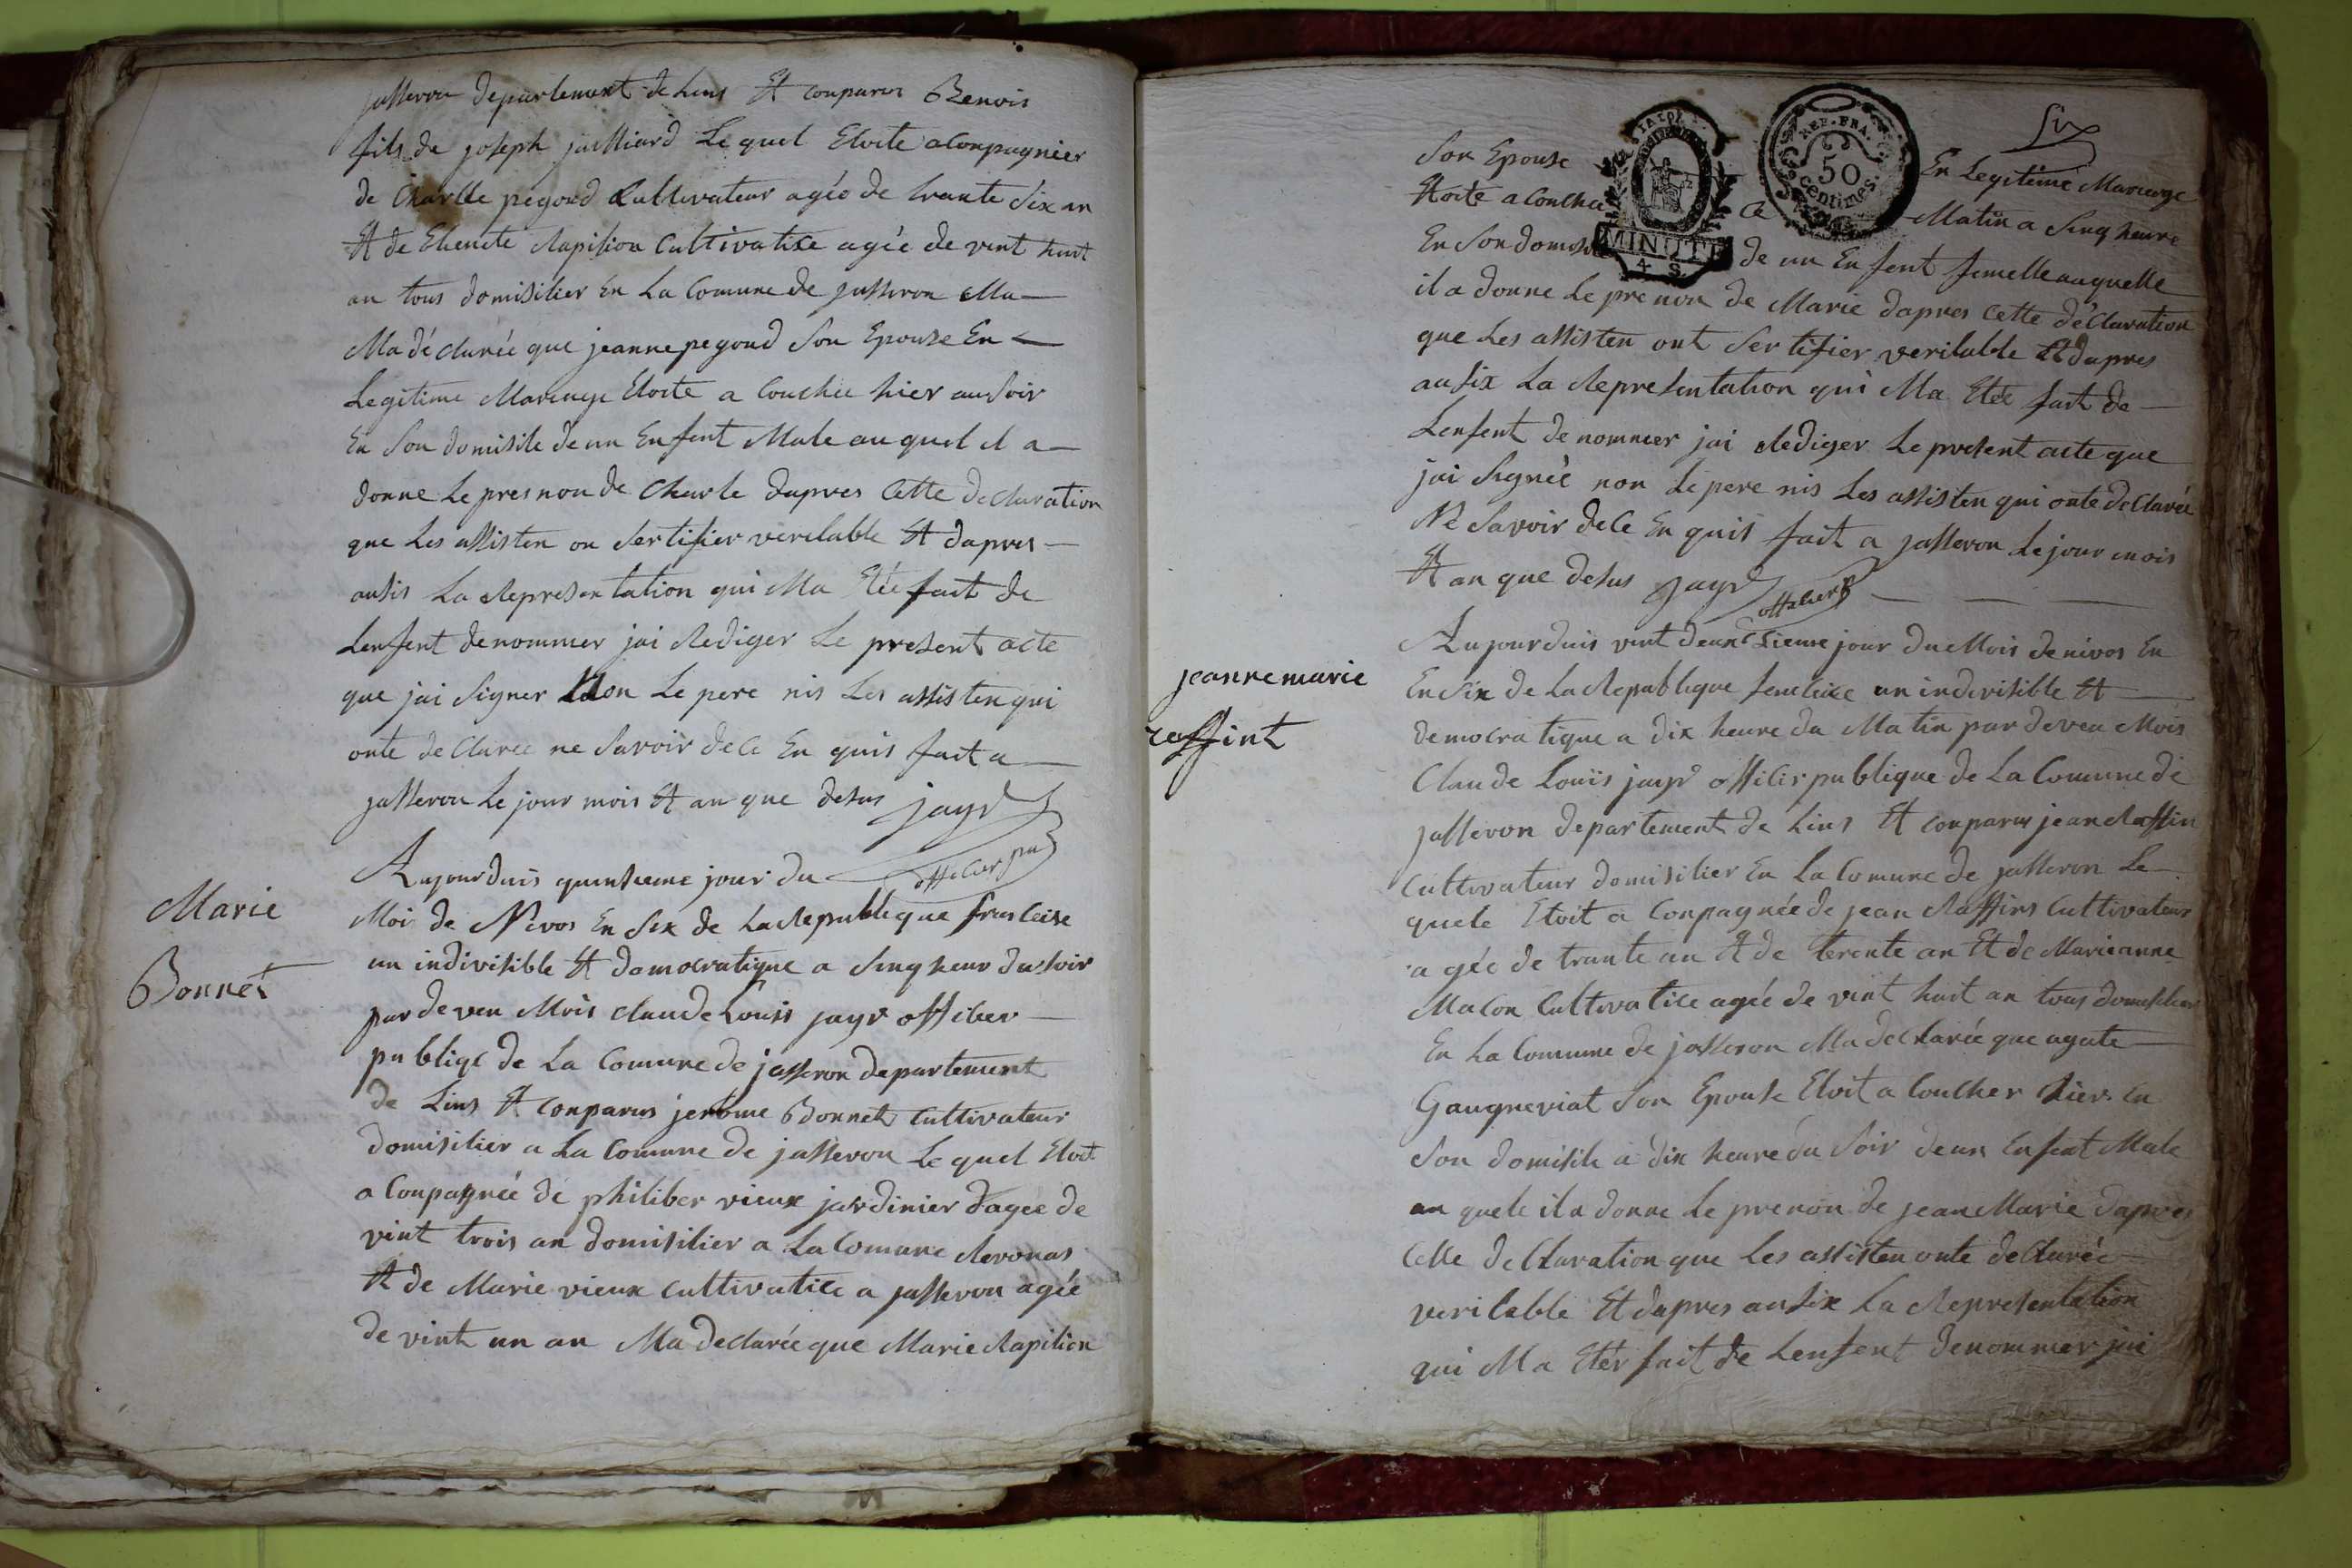 jasseron departement de Lins Et conparus Benois
fils de joseph juilliard Le quel Etoite aConpagnier
de Charlle pegoud Cultivateur agée de trante six an
Et de Rapision Cultivatise agée de vint huit
an tous domisilier En La Comune de jasseron Ma
Ma déclurée que jeanne pegoud Son Epouse En
Legitime Marieage Etoite a Couchée hier au Soir
En Son domisile de un Enfent Male au quel il a
donne Le presnon de Charle dapres Cette declaration
que Les assisten on Sertifier veritable Et dapres
ausis La Representation qui Ma Etée fait de
Lenfent denommer jai Rediger Le present acte
que jai Signer Non Le pere nis Les assisten qui
onte declaree ne Savoir de Ce En quis fait a
jasseron Le jour mois Et an que desus jayr
officier pu
Marie
Bonnet
Aujourduis quinsieme jour du
Moi de Nivos En Six de La Republique franseise
un indivisible Et damocratique a Sinq heur du soir
par de veu Mois claude Louis jayr officier
publiqe de La Comune de jasseron departement
de Lins Et conparus jerome Bonnet Cultivateur
domisilier a La Comune de jasseron Le quel Etoit
a Conpagnée de philiber vieux jardinier dagee de
vint trois an domisilier a La Comune Revonas
Et de Marie vieux Cultivatise a jasseron agée
de vint un an Ma declarée que Marie Rapision
Six
Son Epouse En Legitime Marieage
Etoite a Couchee Ce Matin a Sinq heure
En Son domisile de un Enfent femelle auquelle
MINUTE
4 S.
REP. FRA.
50
centimes.
il a donne Le prenon de Marie dapres Cette déClaration
que Les assisten ont Sertifier veritable Et dapres
ausix La Representation qui Ma Etée fait de
Lenfent denommer jai Rediger Le present acte que
jai Signée non Le pere nis Les assisten qui onte deClarée
Ne Savoir de Ce En quis fait a jasseron Le jour mois
Et an que desus Jayr officier
jeanne marie
raffint
Aujourduis vint deuxsieme jour du Mois de nivos En
En Six de La Republique franseise un indivisible Et
democratique a dix heure du Matin par deveu Mois
Claude Louis jayr officis publique de La Comune de
jasseron departement de Lins Et conparus jean Raffin
Cultivateur domisilier En La Comune de jasseron Le
quele Etoit a Conpagnée de jean Raffins Cultivateur
agée de trante an Et de terente an Et de Marieanne
MaCon Cultivatise agée de vint huit an tous domisilier
En La Commune de jasseron Ma declarée que agate
Gaugneviat Son Epouse Etoit a Coucher hier En
Son domisile a dix heure du Soir de un Enfent Male
au quele il a donne Le prenon de jean Marie dapres
Cette declaration que Les assisten onte declarée
veritable Et dapres ausix La Representation
qui Ma Etér fait de Lenfent denommer jai